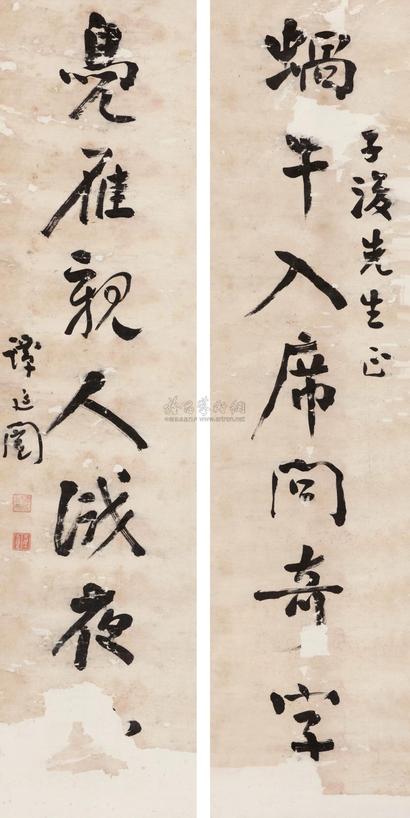 蝸牛入席問奇字
子浚先生正
鳧雁親人夜
譚延闓